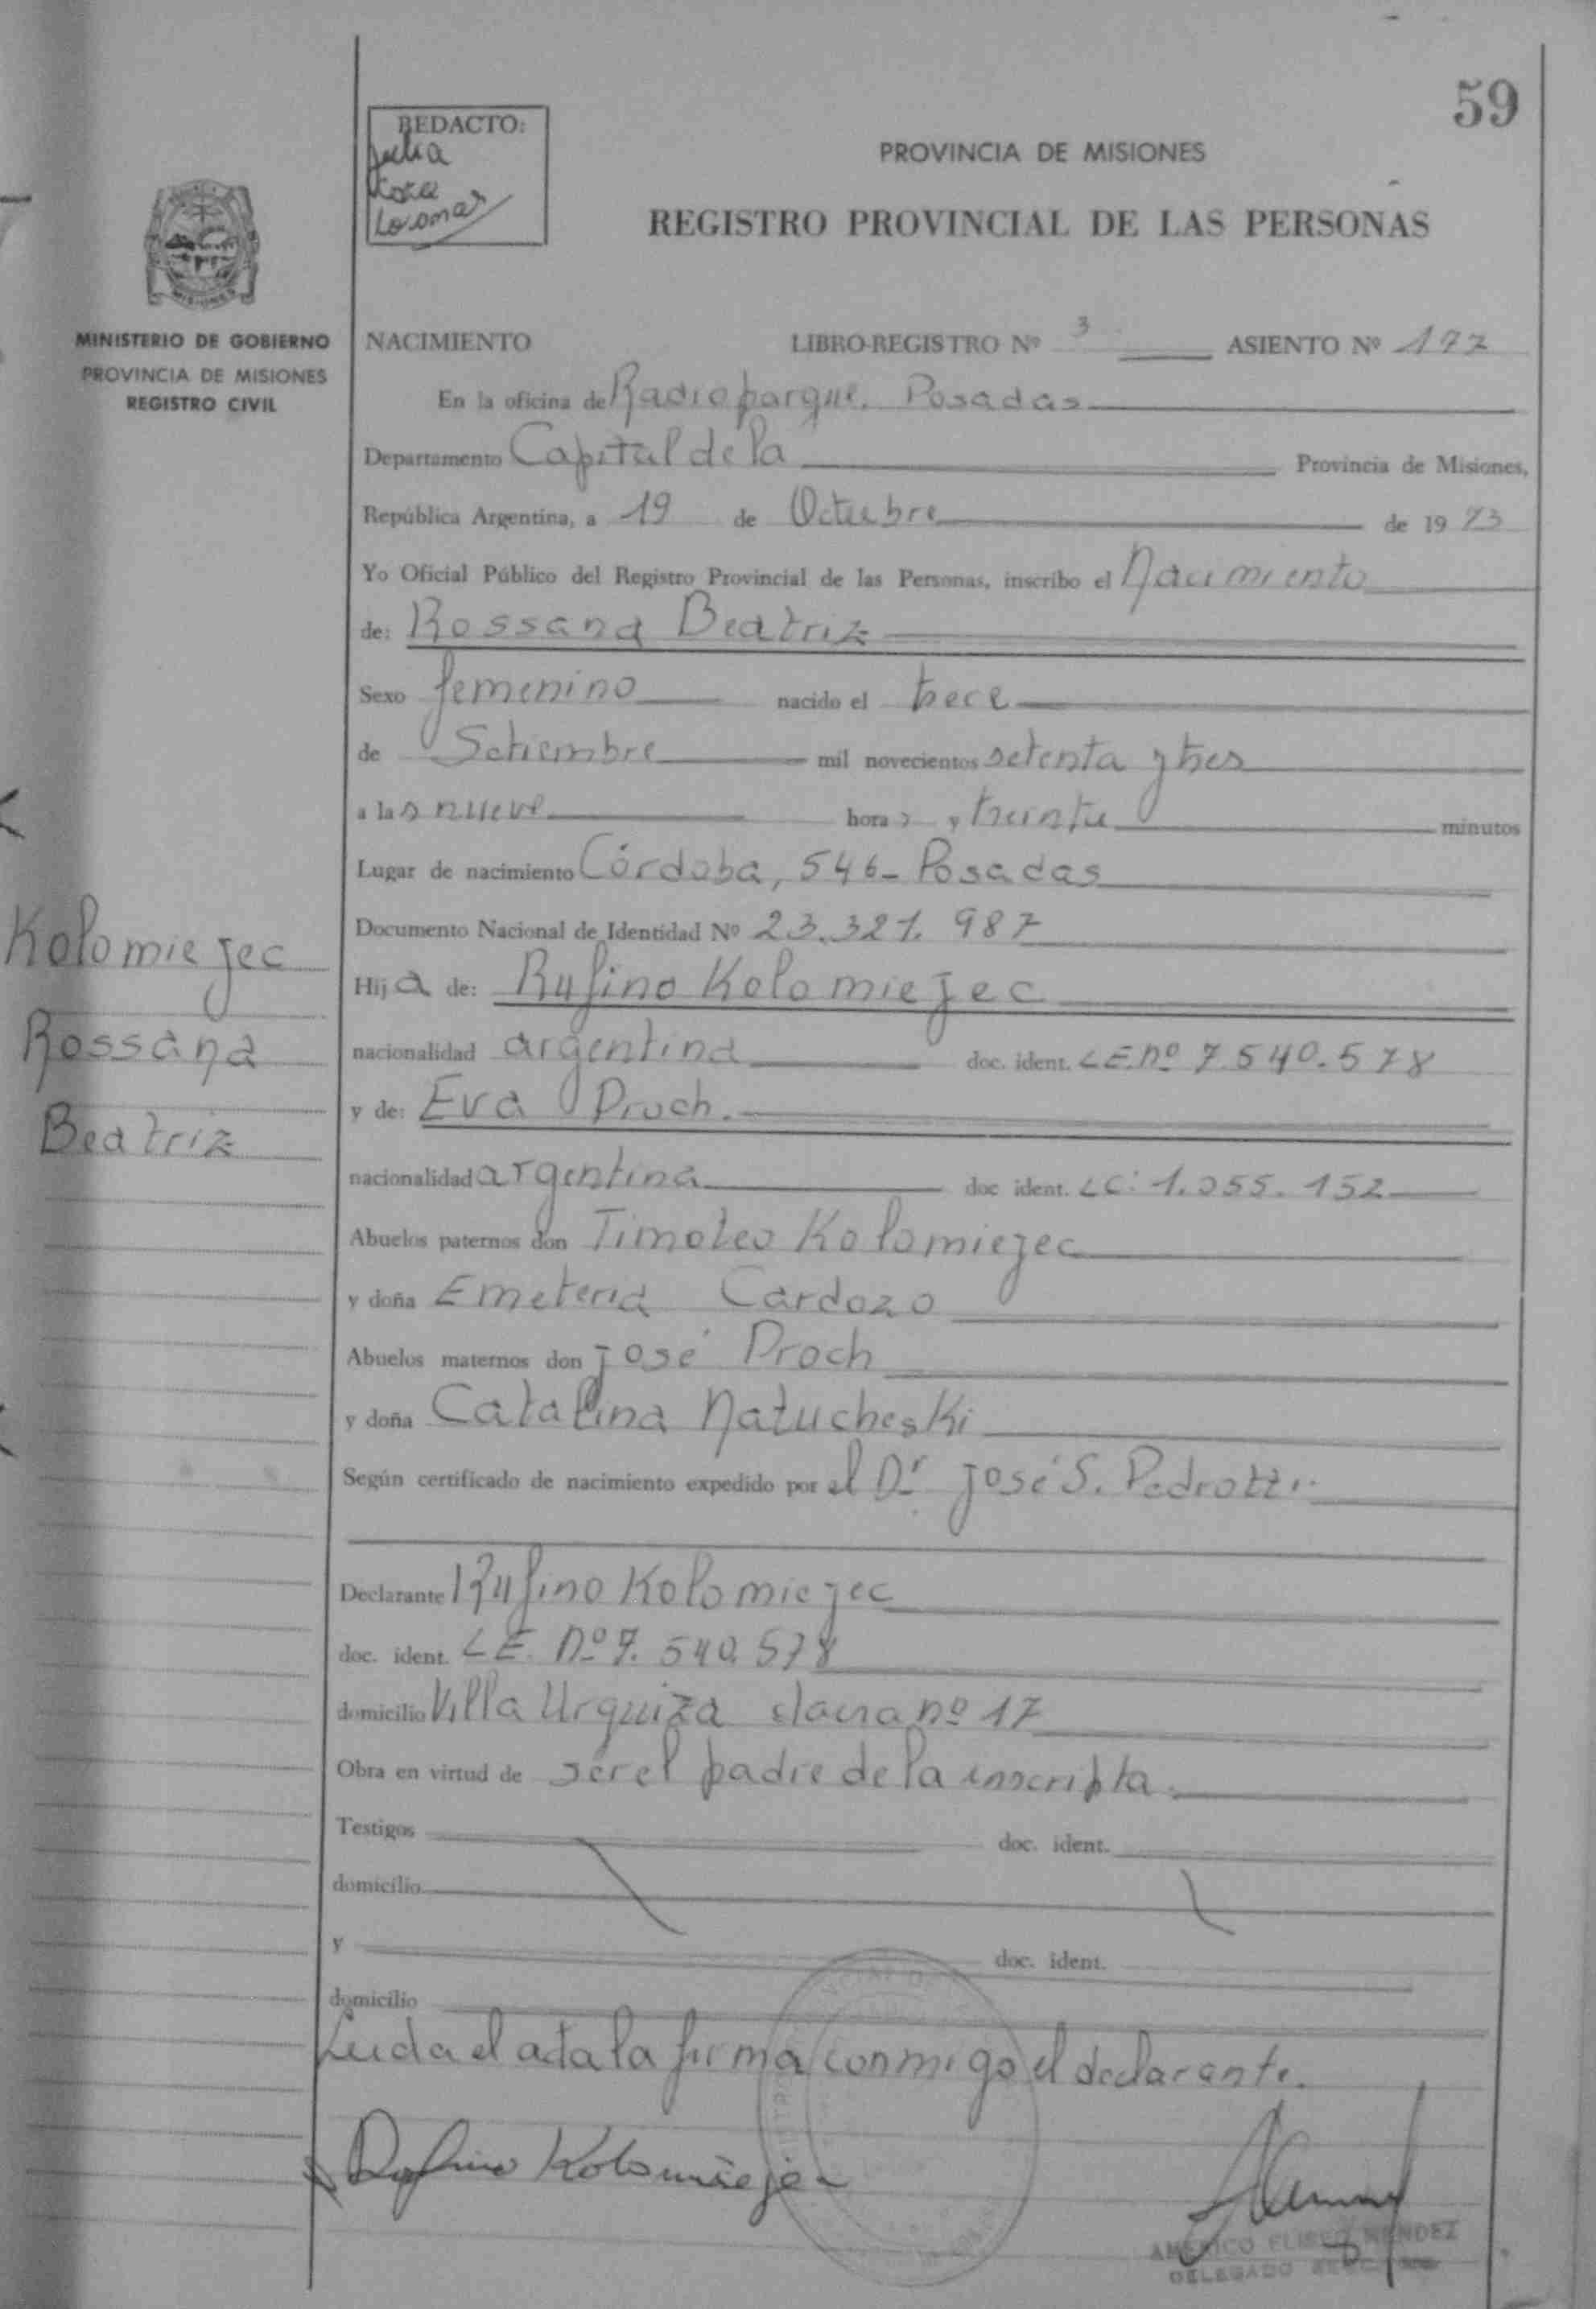 59
REDACTO:
Julia
Rosa
PROVINCIA DE MISIONES
REGISTRO PROVINCIAL DE LAS PERSONAS
MISIONES
MINISTERIO DE GOBIERNO
PROVINCIA DE MISIONES
REGISTRO CIVIL
NACIMIENTO LIBRO-REGISTRO Nº 3 ASIENTO Nº
En la oficina de Radioparque. Posadas
Departamento Capital de la Provincia de Misiones,
República Argentina, a 19 de Octubre de 1973
Yo Oficial Público del Registro Provincial de las Personas, inscribo el Nacimiento
de: Rossana Beatriz
Sexo femenino nacido el trece
de Setiembre mil novecientos setenta y tres
a las nueve horas y treinta minutos
Lugar de nacimiento Córdoba, 546- Posadas
Documento Nacional de Identidad Nº 23.321.987
Kolomiejec
Rossana
Beatriz
Hija de: Rufino Kolomiejec
nacionalidad argentina doc. ident. LE.nº 7.540.578
y de: Eva Proch.
nacionalidad argentina doc ident. LC: 1.055.152
Abuelos paternos don Timoteo Kolomiejec
y doña Emeteria Cardozo
Abuelos maternos don José Proch
y doña Catalina Natucheski
Según certificado de nacimiento expedido por el Dr José S. Pedrotti.
Declarante Rufino Kolomiejec
doc. ident. LE. Nº 7.540.578
domicilio Villa Urquiza chacra nº 17
Obra en virtud de ser el padre de la inscripta.
Testigos doc. ident.
domicilio
y doc. ident.
domicilio
Leida el acta la firma conmigo el declarante.
Rufino Kolomiejec
AMERICO ELISEO MENDEZ
DELEGADO